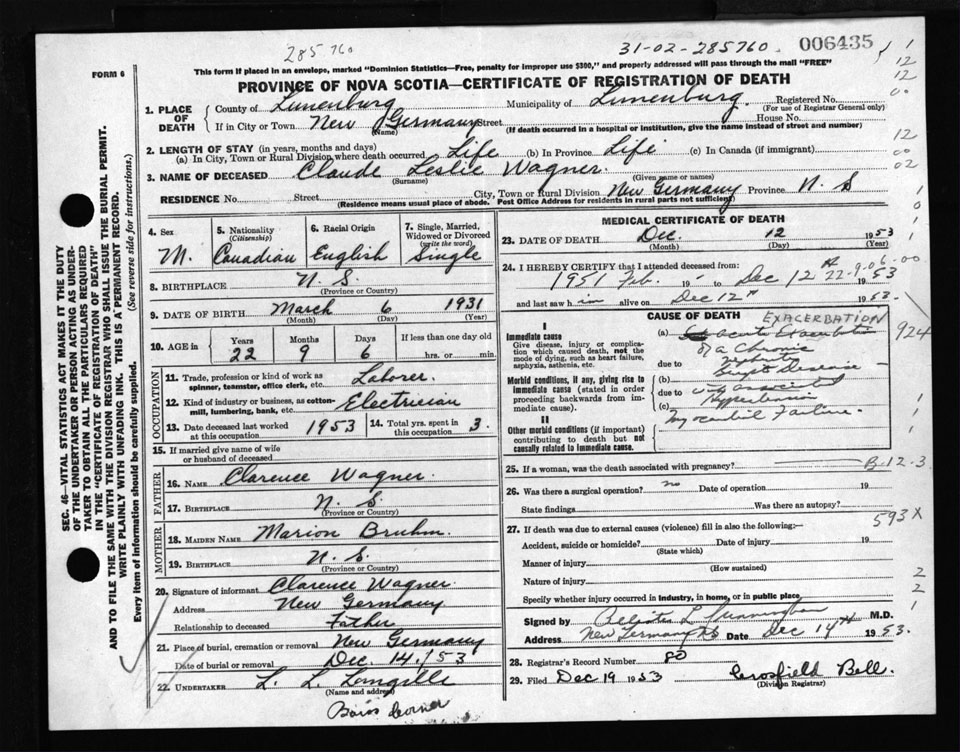 285760
31-02-285760
006435
FORM 6
This form if placed in an envelope, marked "Dominion Statistics—Free, penalty for improper use $300," and properly addressed will pass through the mail "FREE"
PROVINCE OF NOVA SCOTIA—CERTIFICATE OF REGISTRATION OF DEATH
1. PLACE OF DEATH
County of Lunenburg Municipality of Lunenburg. Registered No.
(For use of Registrar General only)
If in City or Town New Germany Street House No.
(Name) (If death occurred in a hospital or institution, give the name instead of street and number)
2. LENGTH OF STAY (in years, months and days)
(a) In City, Town or Rural Division where death occurred Life (b) In Province Life (c) In Canada (if immigrant)
3. NAME OF DECEASED Claude Leslie Wagner.
(Surname) (Given name or names)
RESIDENCE No. Street City, Town or Rural Division New Germany Province N. S
(Residence means usual place of abode. Post Office Address for residents in rural parts not sufficient)
4. Sex
M.
5. Nationality
(Citizenship)
Canadian
6. Racial Origin
English
7. Single, Married, Widowed or Divorced
(write the word)
Single
8. BIRTHPLACE N. S.
(Province or Country)
9. DATE OF BIRTH March 6 1931
(Month) (Day) (Year)
10. AGE in
Years Months Days If less than one day old
22 9 6 hrs. or min.
OCCUPATION
11. Trade, profession or kind of work as spinner, teamster, office clerk, etc. Laborer.
12. Kind of industry or business, as cotton-mill, lumbering, bank, etc. Electrician
13. Date deceased last worked at this occupation 1953
14. Total yrs. spent in this occupation 3.
15. If married give name of wife or husband of deceased
FATHER
16. NAME Clarence Wagner.
17. BIRTHPLACE N. S
(Province or Country)
MOTHER
18. MAIDEN NAME Marion Bruhm.
19. BIRTHPLACE N. S.
(Province or Country)
20. Signature of informant Clarence Wagner.
Address New Germany
Relationship to deceased Father
21. Place of burial, cremation or removal New Germany
Date of burial or removal Dec. 14./53
22. UNDERTAKER L. L. Langille
(Name and address)
Corner
MEDICAL CERTIFICATE OF DEATH
23. DATE OF DEATH Dec. 12 1953
(Month) (Day) (Year)
24. I HEREBY CERTIFY that I attended deceased from:
22-9-06-00
1951 Feb. 19 to Dec 12th 1953
and last saw him alive on Dec 12th 1953.
CAUSE OF DEATH EXACERBATION
924
I
Immediate cause
Give disease, injury or complication which caused death, not the mode of dying, such as heart failure, asphyxia, asthenia, etc.
(a) acute Exacerbation
of a Chronic
due to
Brights Disease
Morbid conditions, if any, giving rise to immediate cause (stated in order proceeding backwards from immediate cause).
(b)
due to associated
(c) Hypertension
II
Other morbid conditions (if important) contributing to death but not causally related to immediate cause.
Myocardial Failure.
25. If a woman, was the death associated with pregnancy? B-12-3
26. Was there a surgical operation? no Date of operation 19
State findings Was there an autopsy?
593X
27. If death was due to external causes (violence) fill in also the following:—
Accident, suicide or homicide? Date of injury 19
(State which)
Manner of injury
(How sustained)
Nature of injury
Specify whether injury occurred in industry, in home, or in public place
Signed by L Cunningham M.D.
Address New Germany NS Date Dec 14th 1953.
28. Registrar's Record Number 80
29. Filed Dec 19 1953 Crosfield Bell.
(Division Registrar)
SEC. 46—VITAL STATISTICS ACT MAKES IT THE DUTY
OF THE UNDERTAKER OR PERSON ACTING AS UNDER-
TAKER TO OBTAIN ALL THE PARTICULARS REQUIRED
IN THE "CERTIFICATE OF REGISTRATION OF DEATH"
AND TO FILE THE SAME WITH THE DIVISION REGISTRAR WHO SHALL ISSUE THE BURIAL PERMIT.
WRITE PLAINLY WITH UNFADING INK. THIS IS A PERMANENT RECORD.
Every item of information should be carefully supplied. (See reverse side for instructions.)
1
12
12
00
12
00
02
1
0
1
1
1
1
2
2
1